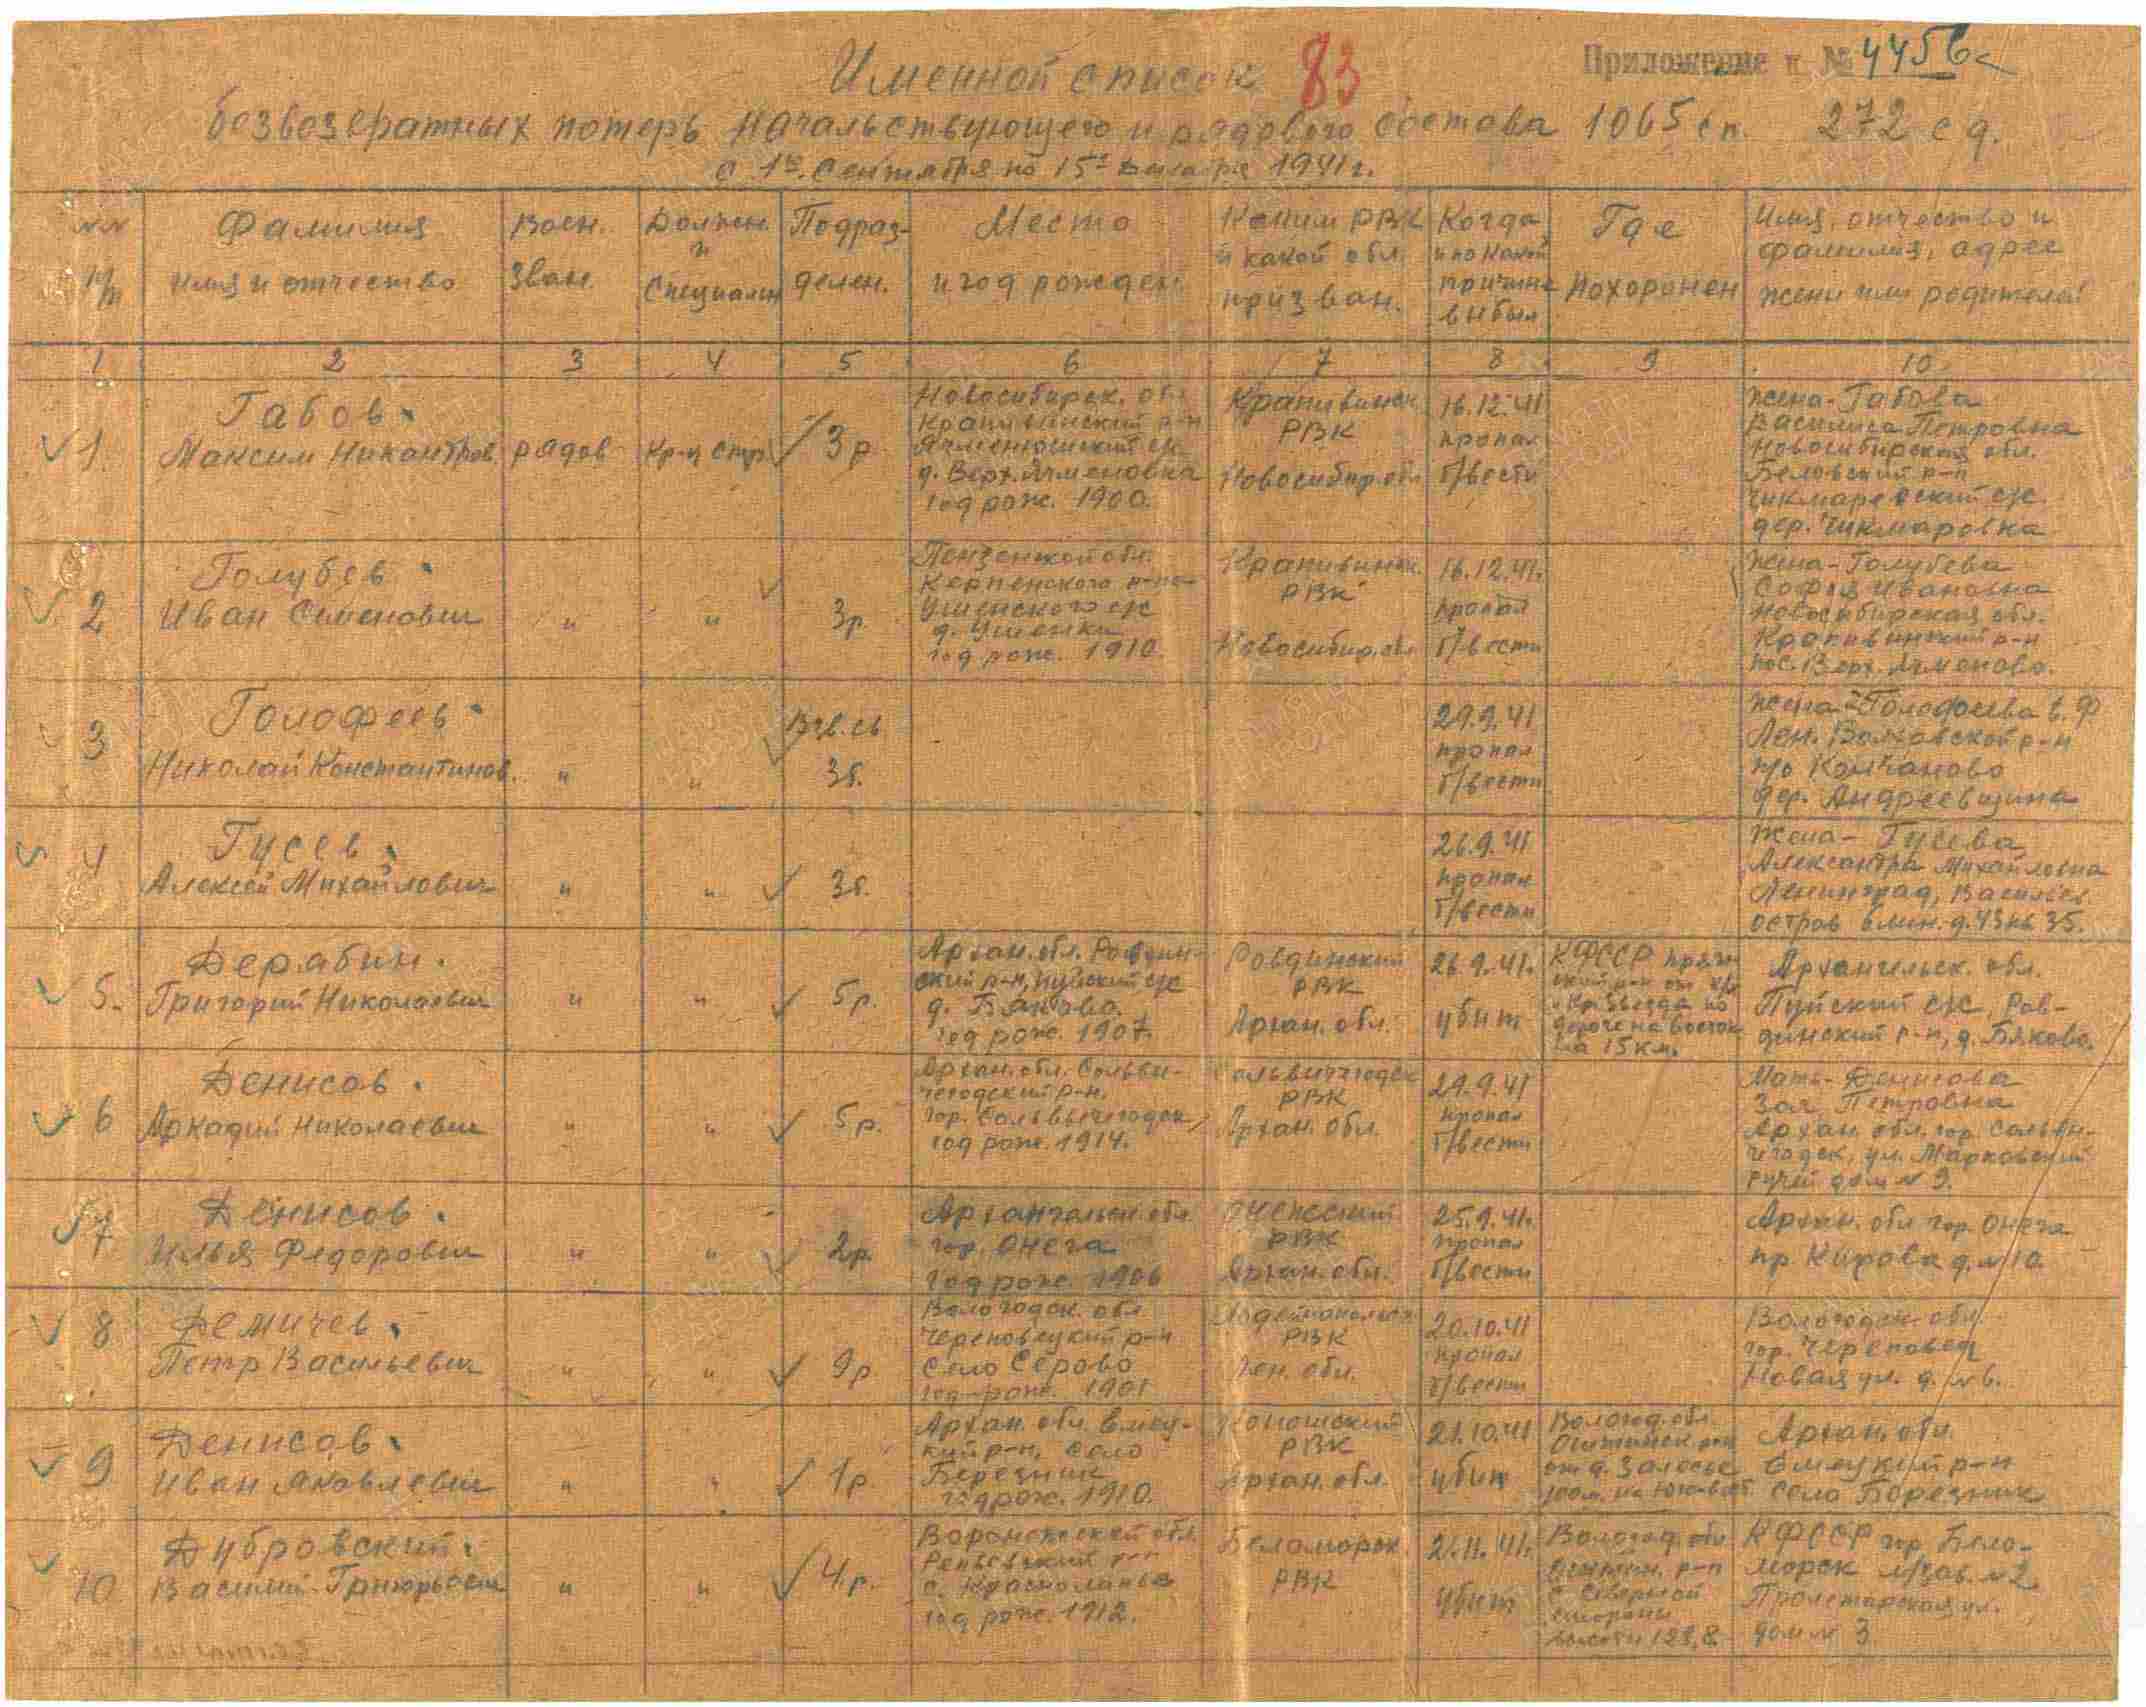 Именной список 83
Приложение к № 4456с
безвозвратных потерь начальствующего и рядового состава 1065 сп. 272 с д.
с 1го Сентября по 15е Декабря 1941 г.
№№ п/п
Фамилия имя и отчество
Воен. Зван.
Должн. и Специальн
Подраз- делен.
Место и год рожден.
Каким РВК и какой обл. призван.
Когда и по какой причине выбыл
Где похоронен
Имя, отчество и фамилия, адрес жени или родителей
1 2 3 4 5 6 7 8 9 10
1
Габов
Максим Никантров.
рядов
Кр-ц стр.
3 р
Новосибирск. обл
Крапивинский р-н
Ачменюшский с/с
д. Верх. Ачменовка
год рож. 1900.
Крапивинск.
РВК
Новосибир. обл
16.12.41
пропал
б/вести
жена - Габова
Василиса Петровна
Новосибирская обл.
Беловский р-н
Чикмаревский с/с
дер. Чикмаровка
2
Голубев
Иван Семенович
"
"
3р
Пензенской обл.
Керпенского р-на
Ушенского с/с
д. Ушенки
год рож. 1910
Крапивинск.
РВК
Новосибир. обл
16.12.41.
пропал
б/вести
жена - Голубева
Софья Ивановна
Новосибирская обл.
Крапивинский р-н
пос. Верх. Ачменово.
3
Голофеев
Николай Константинов.
"
"
Взв. св
3б.
29.9.41
пропал
б/вести
жена - Голофеева В. Ф
Лен. Волховской р-н
п/о Колчаново
дер. Андреевщина
4
Гусев
Алексей Михайлович
"
"
3б.
26.9.41
пропал
б/вести
жена - Гусева
Александра Михайловна
Ленинград, Васильев
остров 6 лин. д. 43 кв 35.
5.
Дерабин.
Григорий Николаевич
"
"
5р.
Архан. обл. Ровдин-
ский р-н, Пуйский с/с
д. Бяково.
год рож. 1907.
Ровдинский
РВК
Архан. обл.
26.9.41.
убит
КФССР пряжин-
ский р-н от
Кр. Звезда по
дороге на восток
на 15 км.
Архангельск. обл.
Пуйский с/с, Ров-
динский р-н, д. Бяково.
6
Денисов.
Аркадий Николаевич
"
"
5р.
Архан. обл. Сольви-
чегодский р-н.
гор. Сольвычегодск,
год рож. 1914.
Сольвичегодск
РВК
Архан. обл.
29.9.41
пропал
б/вести
Мать - Денисова
Зоя Петровна
Архан. обл. гор. Сольви-
чегодск, ул. Марковский
ручей дом № 9.
7
Денисов.
Илья Федорович
"
"
2р.
Архангельск. обл
гор. Онега
год рож. 1906
Онежский
РВК
Архан. обл.
25.9.41.
пропал
б/вести
Архан. обл гор. Онега
пр. Кирова д. № 10.
8
Демичев.
Петр Васильевич
"
"
9р
Вологодск. обл
Череповецкий р-н
Село Серово
год рож. 1901
Лодейнопольск.
РВК
Лен. обл.
20.10.41
пропал
б/вести
Вологодск. обл
гор. Череповец
Новая ул. д. № 6.
9
Денисов.
Иван Яковлевич
"
"
1р.
Архан. обл. Емец-
кий р-н, село
Березник
год рож. 1910.
Коношский
РВК
Архан. обл.
21.10.41
убит
Вологод. обл.
Оштинск. р-н
от д. Залесье
100 м. на юго-вост.
Архан. обл.
Емецкий р-н
село Березник
10
Дубровский.
Василий Григорьевич
"
"
4р.
Воронежской обл.
Репьевский р-н
с. Краснолипье
год рож. 1912.
Беломорск.
РВК
2.11.41.
убит
Вологод. обл
Оштин. р-н
с северной
стороны
высоты 123,8
КФССР гор. Бело-
морск л/зав. № 2
Пролетарская ул.
дом № 3